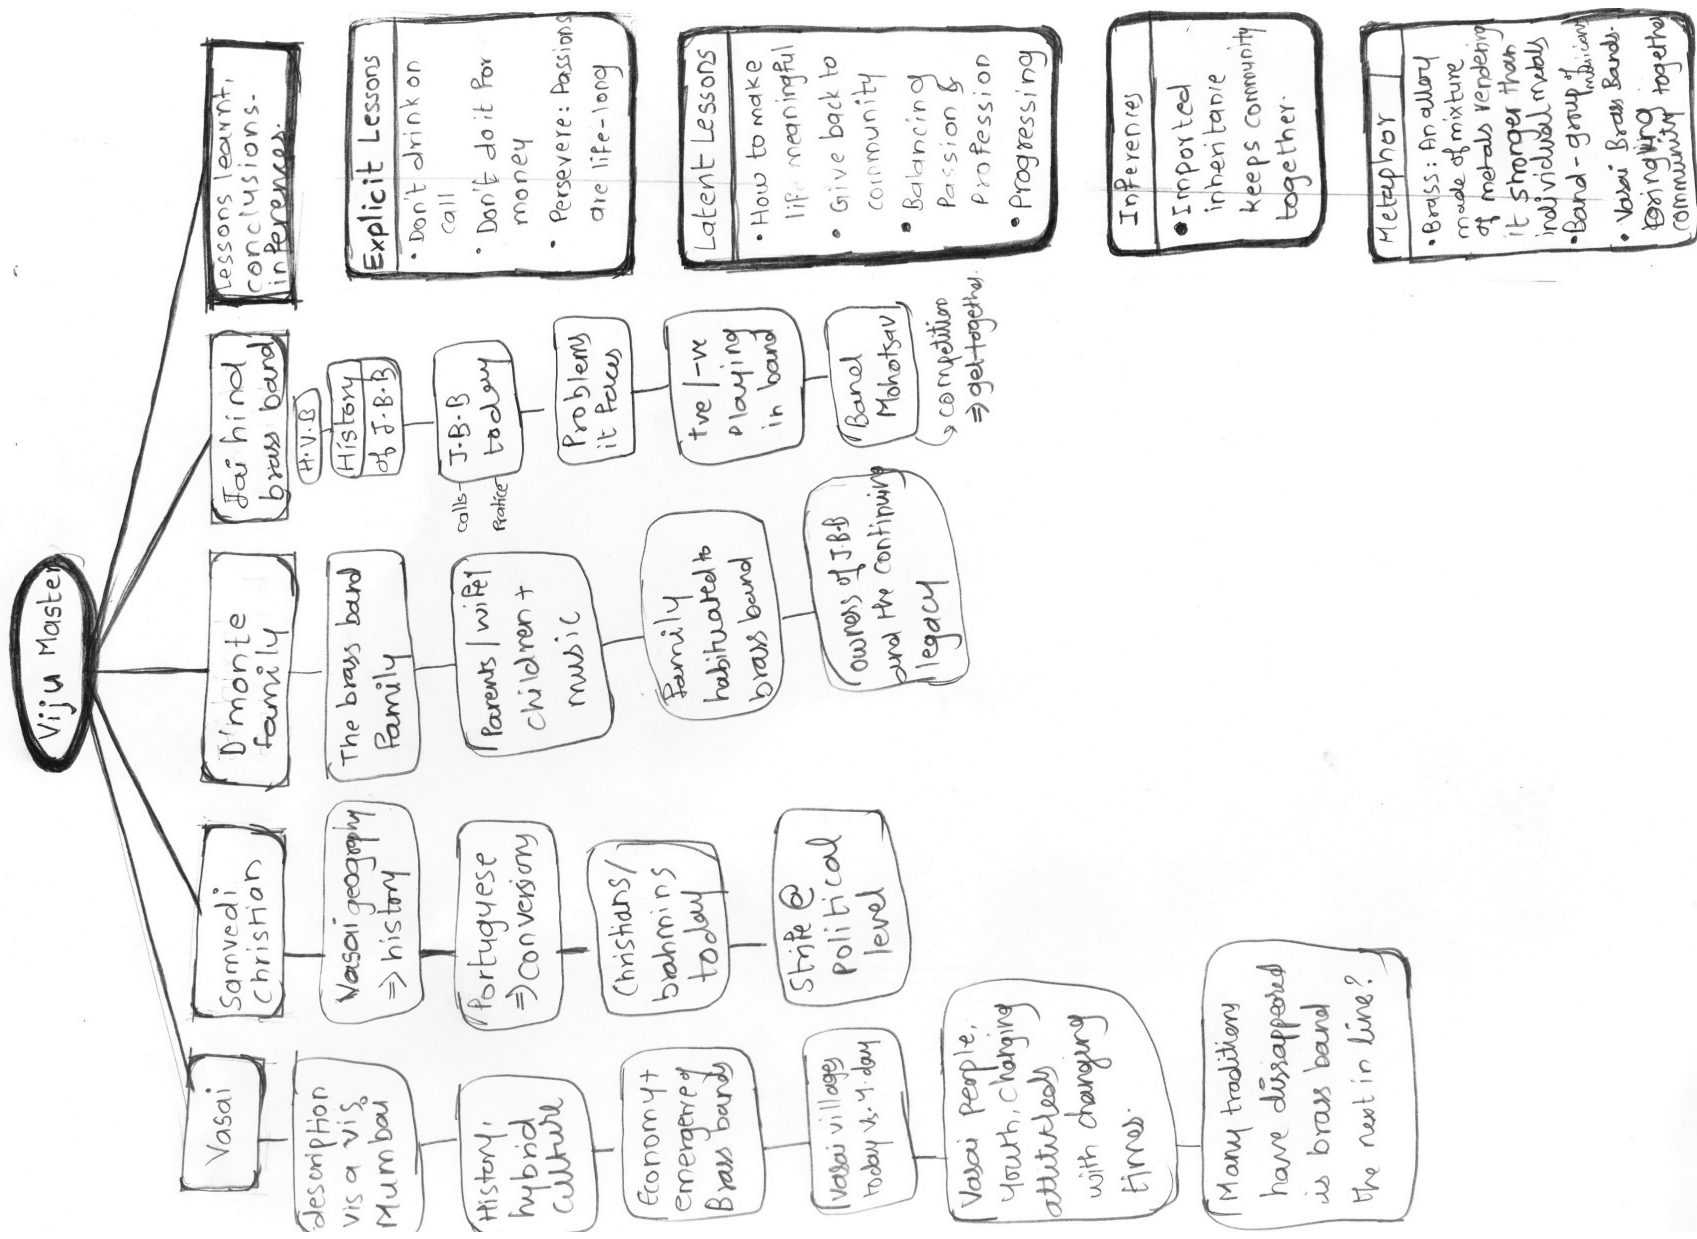 Viju Master
Vasai
description
vis a vis
Mumbai
History,
hybrid
culture
Economy +
emergence of
Brass bands
Vasai villages
today vs. y.day
Vasai people,
youth, changing
attitudes
with changing
times.
Many traditions
have disappeared
is brass band
the next in line?
Samvedi
Christian
Vasai geography
⇒ history
Portuguese
⇒ conversions
Christians/
brahmins
today
Strife @
political
level
D'monte
family
The brass band
family
Parents / wifey
children +
music
Family
habituated to
brass band
owners of J.B.B
and the continuing
legacy
Jai hind
brass band
H.V.B
History
of J.B.B
J.B.B
today
calls
Pratice
Problems
it faces
+ve / -ve
playing
in band
Band
Mohotsav
↪ competition
⇒ get together.
Lessons learnt,
conclusions.
inferences.
Explicit Lessons
• Don't drink on
call
• Don't do it for
money
• Persevere: Passions
are life-long
Latent Lessons
• How to make
life meaningful
• Give back to
community
• Balancing
Passion &
Profession
• Progressing
Inferences
• Imported
inheritance
keeps community
together.
Metaphor
• Brass: An alloy
made of mixture
of metals rendering
it stronger than
individual metals
• Band - group of musicians
• Vasai Brass Bands.
bringing
community together